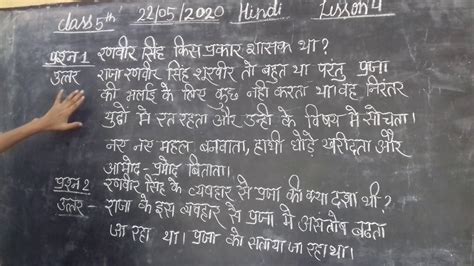 class 5th 22/05/2020 Hindi Lesson 4
प्रश्न 1 रणवीर सिंह किस प्रकार शासक था?
उत्तर राजा रणवीर सिंह शूरवीर तो बहुत था परंतु प्रजा
की भलाई के लिए कुछ नहीं करता था। वह निरंतर
युद्धों में रत रहता और उन्हीं के विषय में सोचता।
नए नए महल बनवाता, हाथी घोड़े खरीदता और
आमोद-प्रमोद बिताता।
प्रश्न 2 रणवीर सिंह के व्यवहार से प्रजा की क्या दशा थी?
उत्तर - राजा के इस व्यवहार से प्रजा में असंतोष बढता
जा रहा था। प्रजा को सताया जा रहा था।